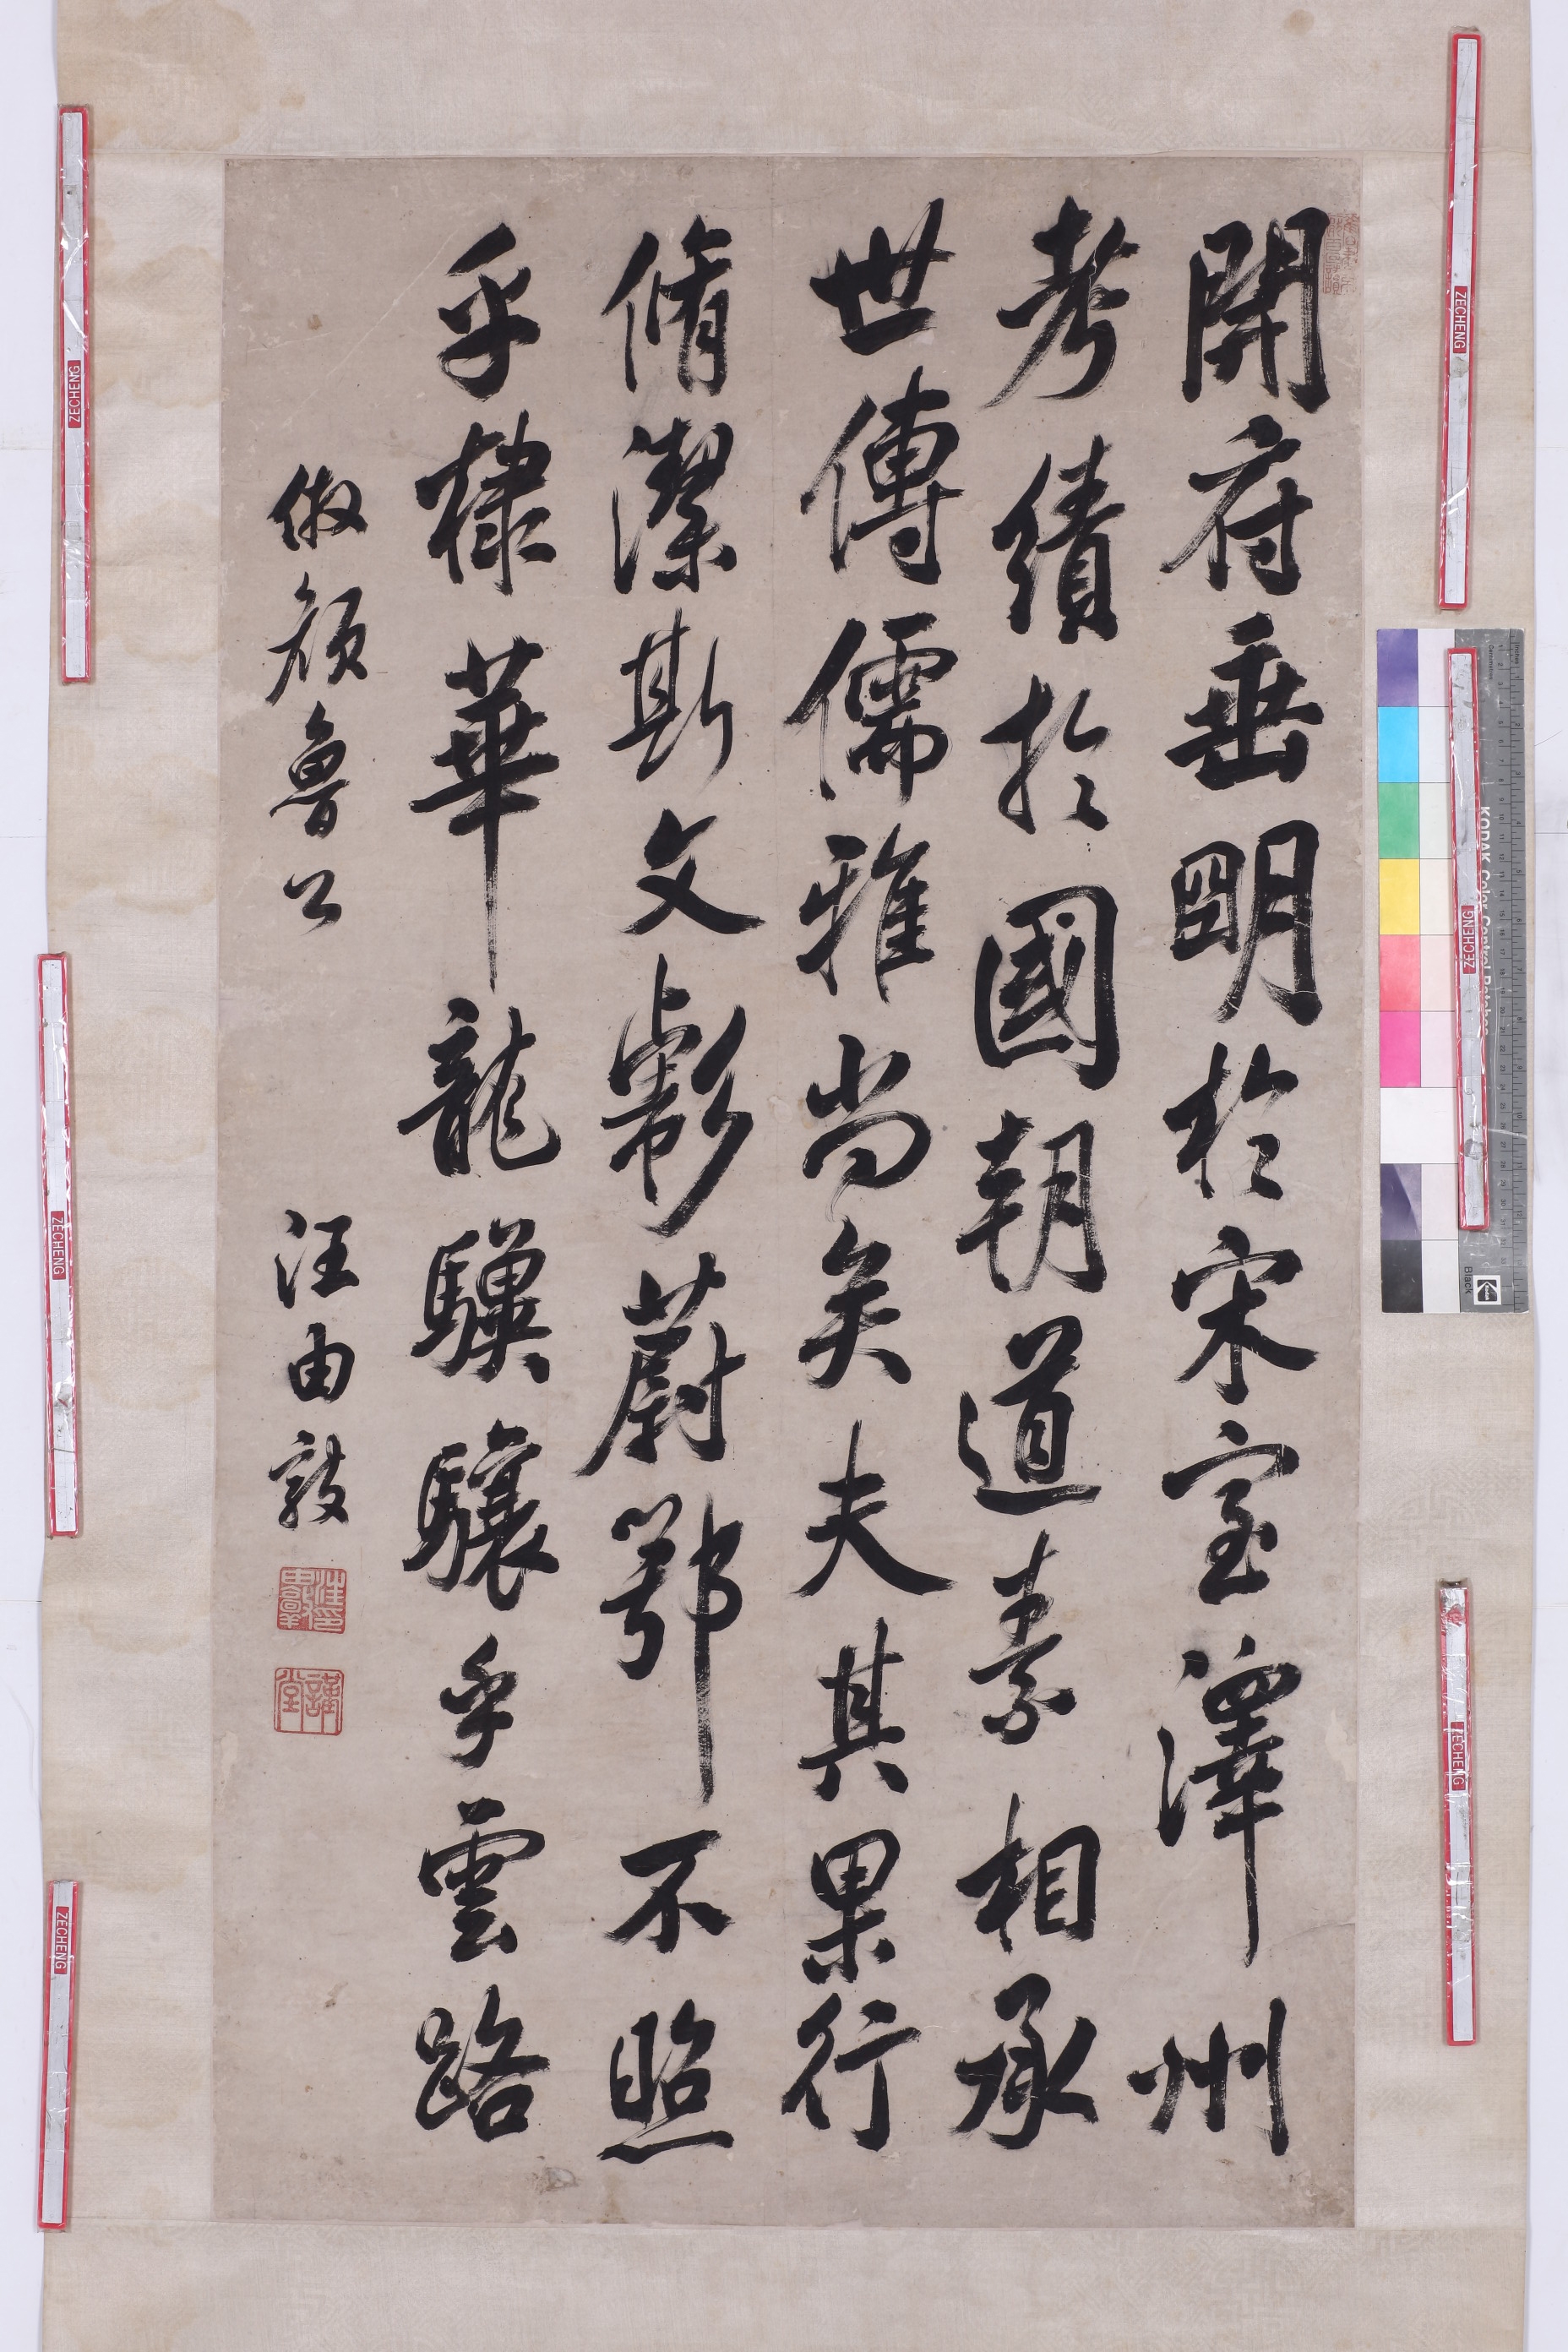 開府垂明於宋室澤州
考績於國朝道素相承
世傳儒雅尚矣夫其果行
脩潔斯文彪蔚鄂不照
乎棣華龍驥驤乎雲路
倣顏魯公
汪由敦
ZECHENG
ZECHENG
ZECHENG
ZECHENG
ZECHENG
ZECHENG
ZECHENG
KODAK Color Control Patches
Black
Kodak